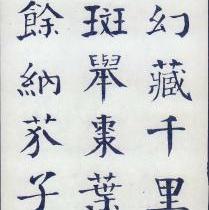 幻藏千里
斑舉棗葉
餘納芥子